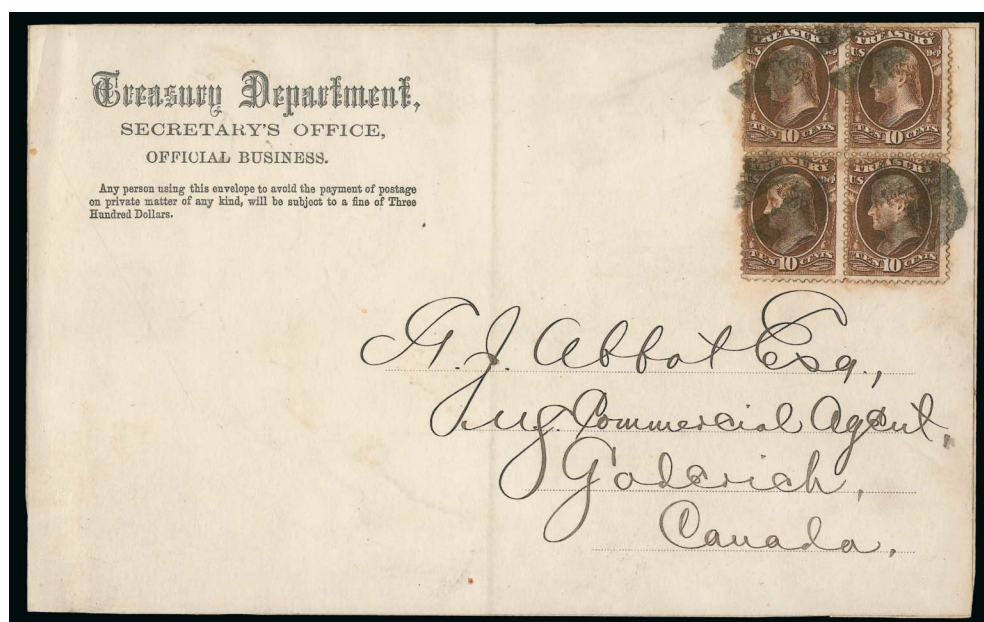 Treasury Department,
SECRETARY'S OFFICE,
OFFICIAL BUSINESS.
Any person using this envelope to avoid the payment of postage
on private matter of any kind, will be subject to a fine of Three
Hundred Dollars.
TREASURY TREASURY
U.S. Dep. U.S. Dep.
TEN 10 CENTS TEN 10 CENTS
TREASURY TREASURY
U.S. Dep. U.S. Dep.
TEN 10 CENTS TEN 10 CENTS
J. Abbot Esq.,
Commercial Agent,
Goderich,
Canada.